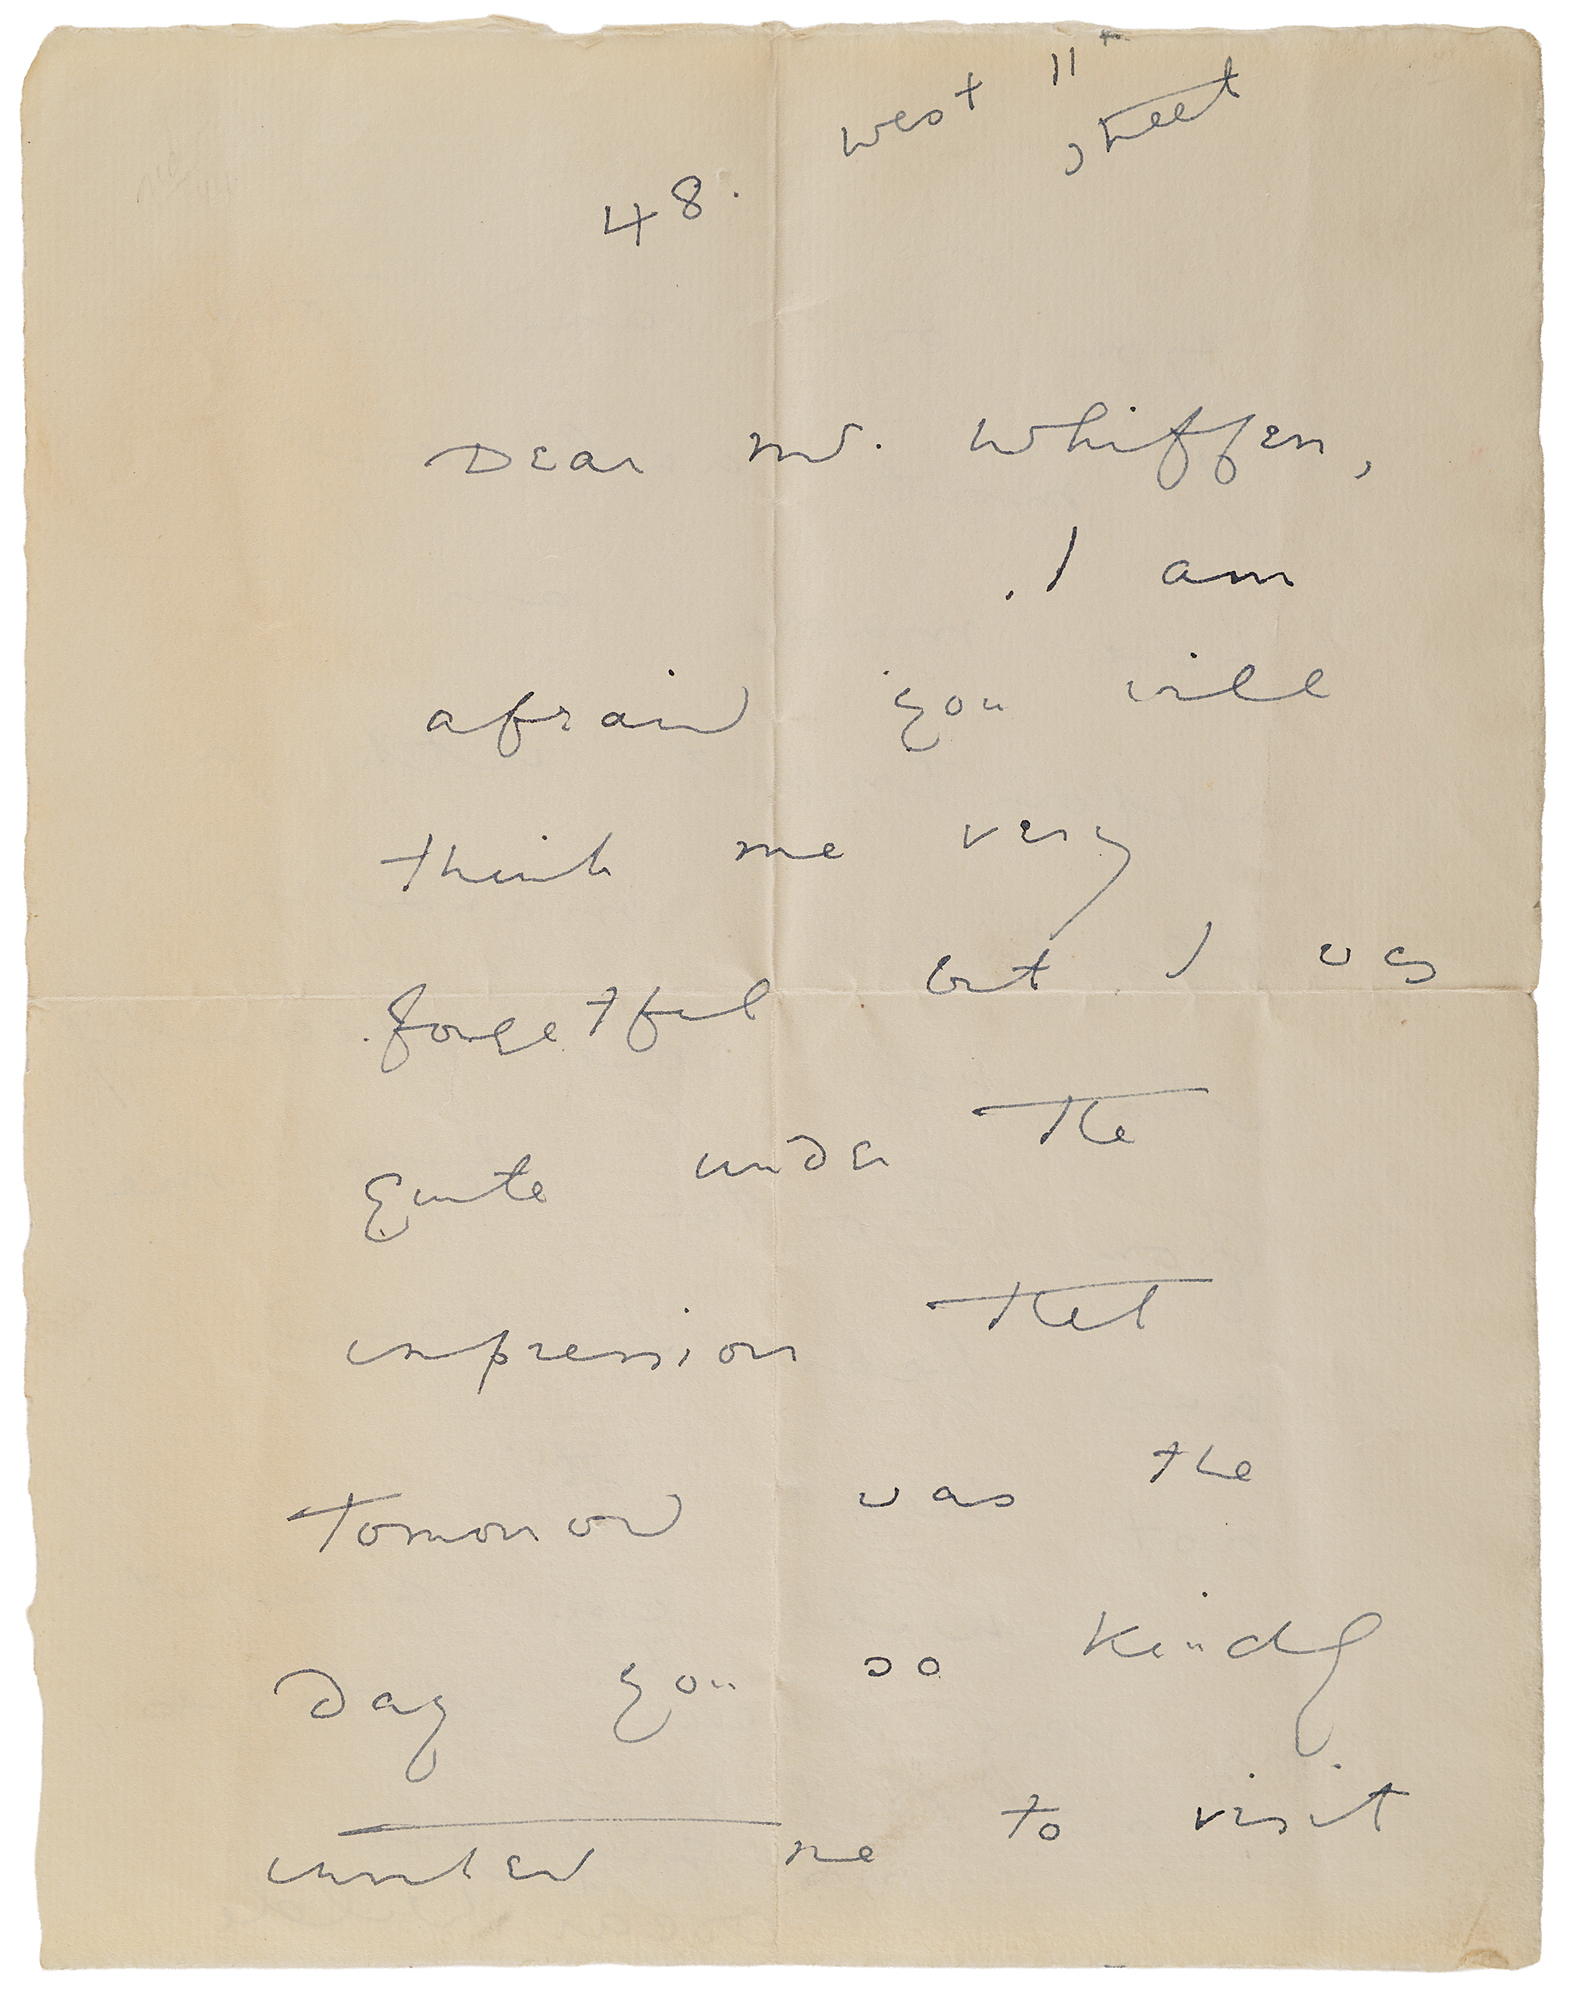 48. West 11th Street
Dear Mr. Whiffen,
I am
afraid you will
think me very
forgetful but I was
quite under the
impression that
tomorrow was the
day you so kindly
invited me to visit